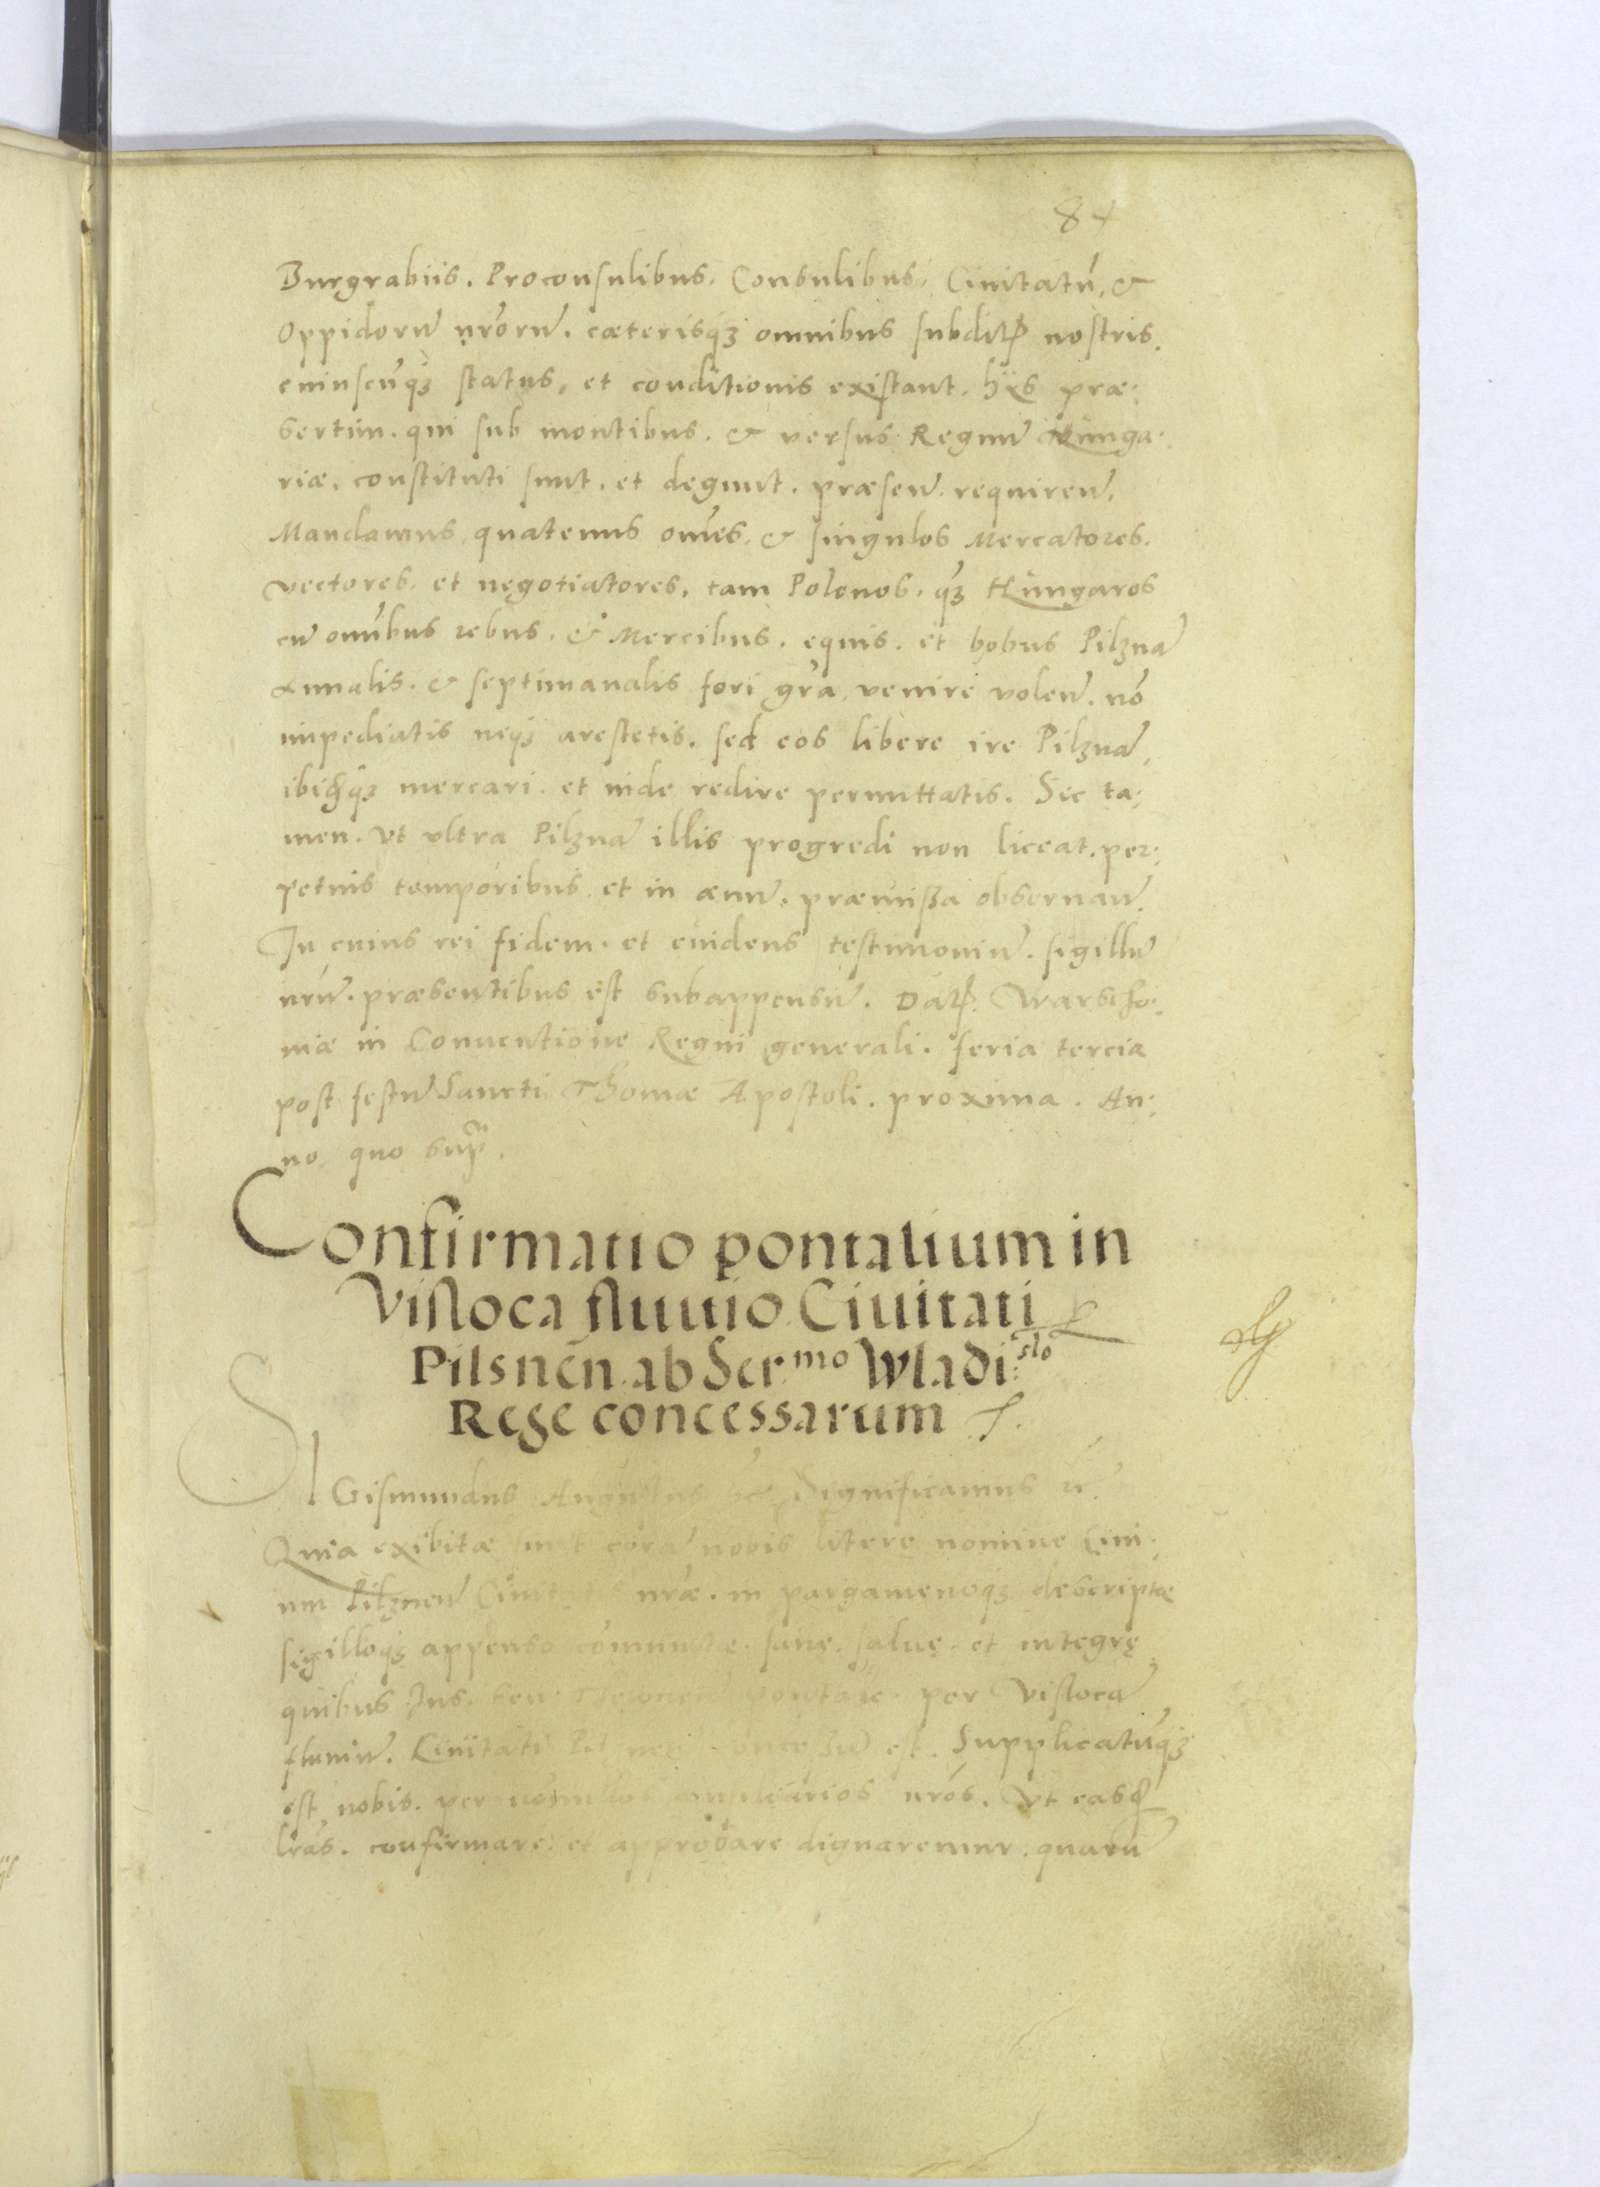 84
Burgrabiis. Proconsulibus. Consulibus. Ciuitatū, &
Oppidorū nrōrū. cæterisq₃ omnibus subditꝭ nostris.
cuiuscūq₃ status, et conditionis existant. hijs præ:
sertim. qui sub montibus. & versus Regnū Hunga:
riæ, constituti sunt, et degunt. præsen̄. requiren̄.
Mandamus, quatenus om̄es, & singulos Mercatores.
Vectores. et negotiatores, tam Polonos. q₃ Hungaros
cū omībus rebus. & Mercibus. equis. et bobus Pilznā
Annalis. & septimanalis fori grā, venire volen̄. nō
impediatis neq₃ arestetis. sed eos libere ire Pilznā,
ibiq₃ mercari. et inde redire permittatis. Sic ta:
men. Vt vltra Pilznā illis progredi non liceat. per:
petuis temporibus et in æuū. præmissa obseruan̄.
In cuius rei fidem. et euidens testimoniū. sigillū
nrū̄. præsentibus est subappensū. Datꝭ. Warscho:
uiæ in Conuentione Regni generali. feria tercia
post festū Sancti Thomæ Apostoli. proxima. An:
no, quo supra.
Confirmatio pontalium in
Visloca fluuio Ciuitati
Pilsnēn. ab Ser.mo Wladi:slo
Rege concessarum
SIGismundus Augustus Significamus
Quia exibitæ sunt corā nobis literę nomine Ciui:
um Pilznen̄ Ciuitatis nræ. in pargamenoq₃ descriptæ
sigilloq₃ appenso cōmunitæ. sane. saluę. et integrę
quibus Ius seu Theloneū pontale. per Vislocā
fluuiū. Ciuitati Pilznen̄ concessū est. Supplicatūq₃
est nobis. per nonnullos consiliarios nrōs. Vt easdꝭ
lrās. confirmare. et approbare dignaremur. quarū